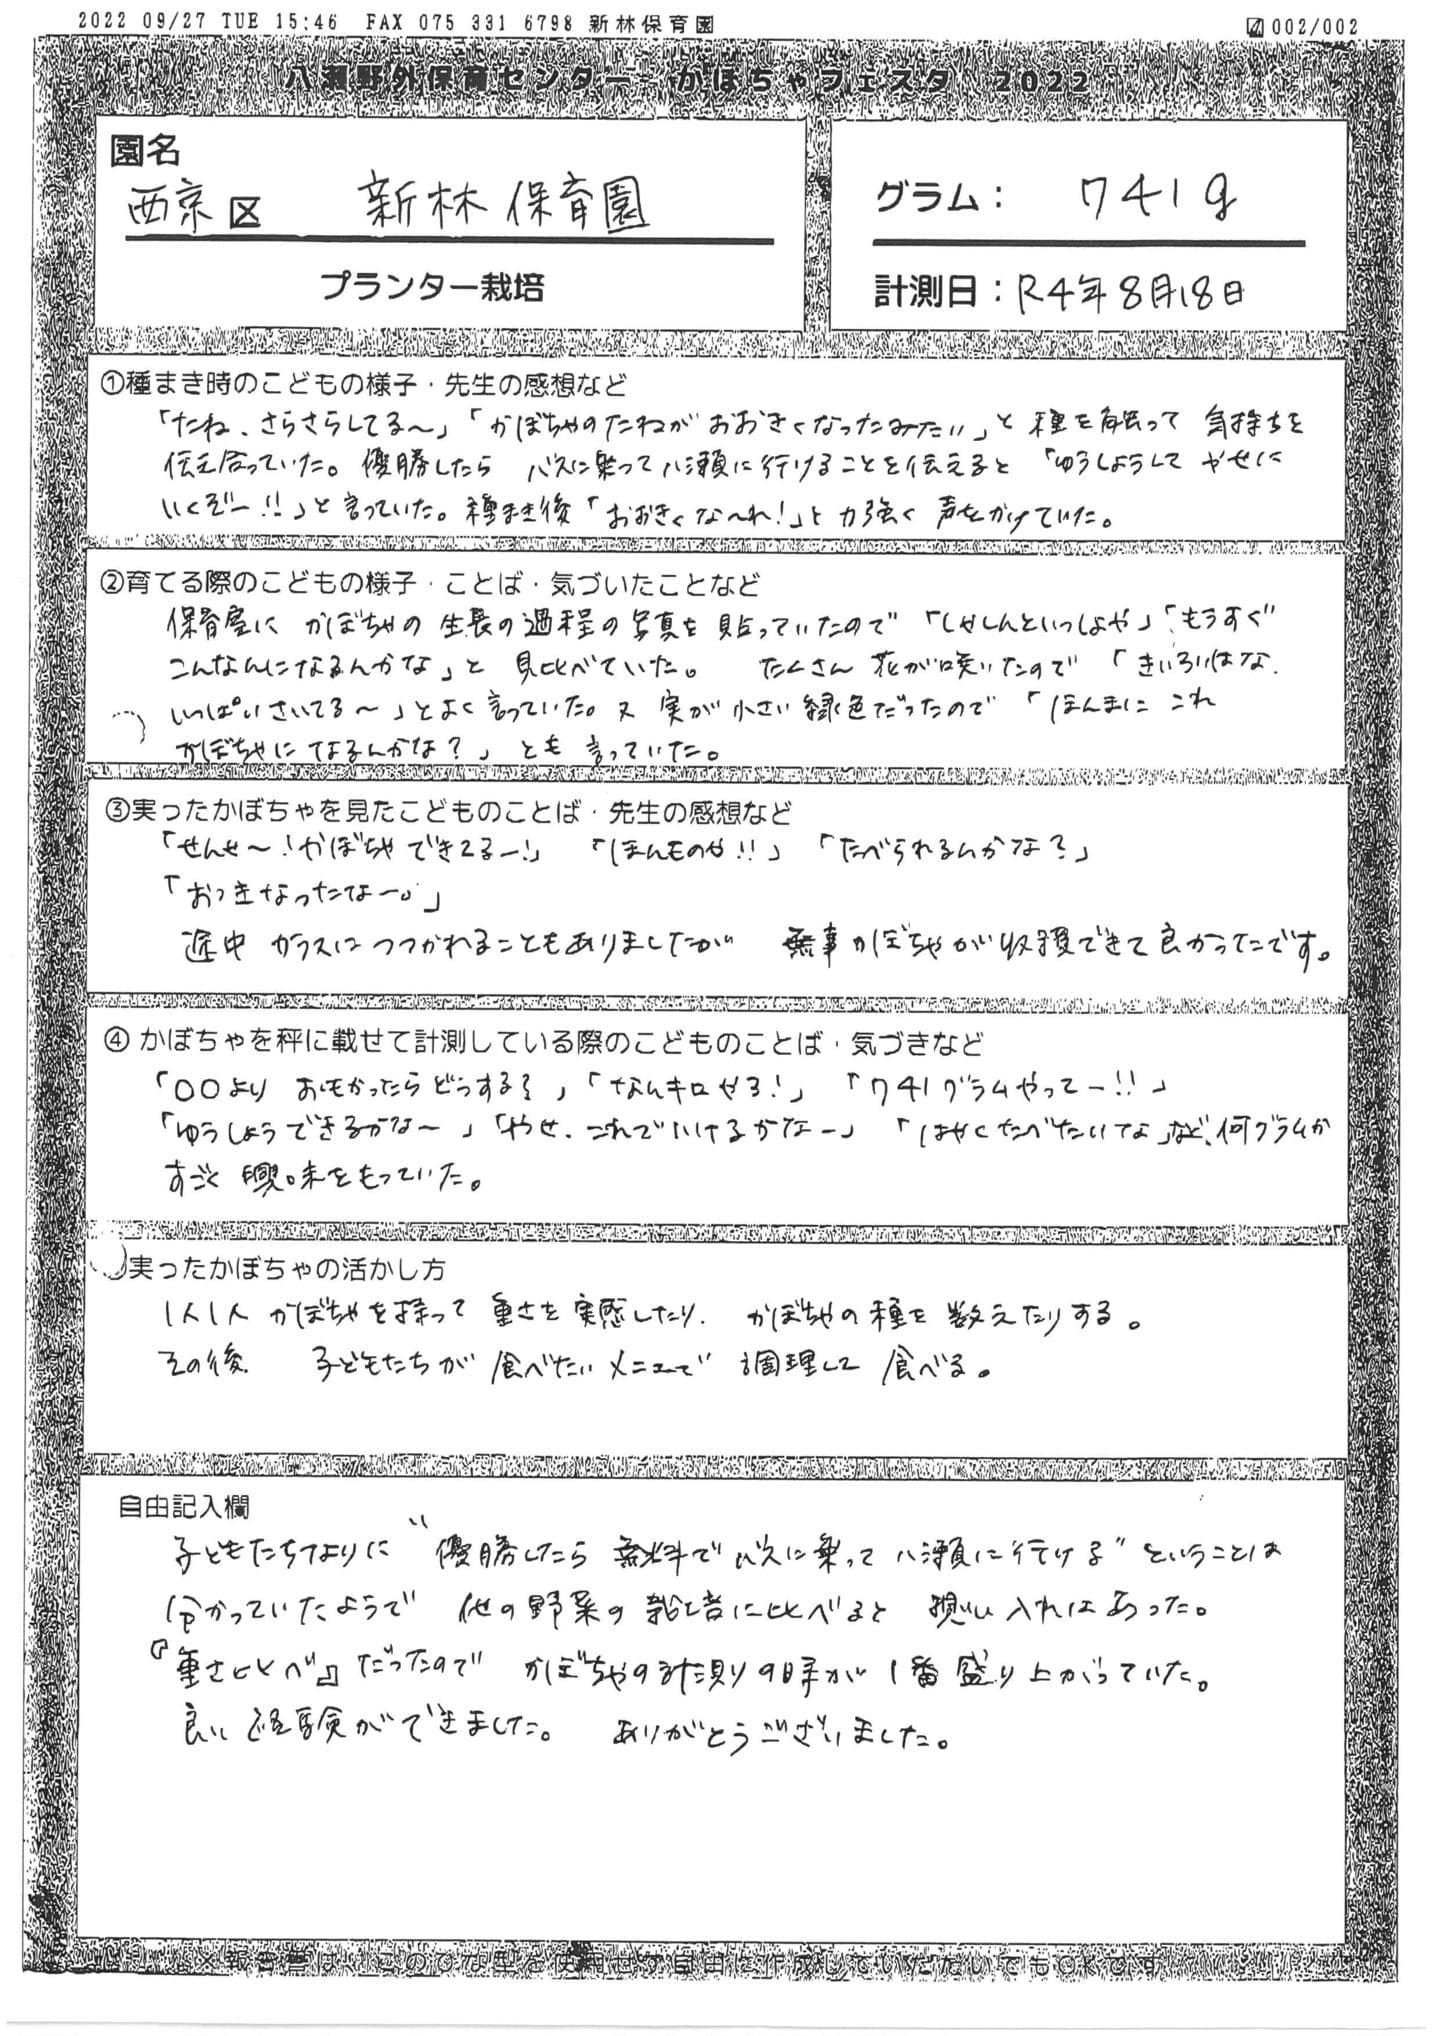 2022 09/27 TUE 15:46 FAX 075 331 6798 新林保育園 002/002
八瀬野外保育センター かぼちゃフェスタ 2022
園名
西京区 新林保育園
プランター栽培
グラム： 741g
計測日：R4年8月18日
①種まき時のこどもの様子・先生の感想など
「たね、さらさらしてる〜」「かぼちゃのたねがおおきくなったみたい」と種を触って気持ちを
伝え合っていた。優勝したら バスに乗って八瀬に行けることを伝えると「ゆうしょうして やせに
いくぞー!!」と言っていた。種まき後「おおきくな〜れ!」と力強く声をかけていた。
②育てる際のこどもの様子・ことば・気づいたことなど
保育室に かぼちゃの生長の過程の写真を貼っていたので「しゃしんといっしょや」「もうすぐ
こんなんになるんかな」と見比べていた。 たくさん花が咲いたので「きいろいはな、
いっぱいさいてる〜」とよく言っていた。又 実が小さい緑色だったので「ほんまに これ
かぼちゃになるんかな？」とも言っていた。
③実ったかぼちゃを見たこどものことば・先生の感想など
「せんせ〜！かぼちゃできてるー!」「ほんものや!!」「たべられるんかな？」
「おっきなったなー。」
途中 カラスにつつかれることもありましたが 無事かぼちゃが収穫できて良かったです。
④ かぼちゃを秤に載せて計測している際のこどものことば・気づきなど
「○○より おもかったらどうする？」「なんキロやろ！」「741グラムやってー!!」
「ゆうしょうできるかな〜」「やせ、これでいけるかなー」「はやくたべたいな」など、何グラムか
すごく興味をもっていた。
実ったかぼちゃの活かし方
1人1人 かぼちゃを持って 重さを実感したり、かぼちゃの種を数えたりする。
その後、 子どもたちが食べたいメニューで 調理して食べる。
自由記入欄
子どもたちなりに "優勝したら 無料でバスに乗って 八瀬に行ける" ということは
分かっていたようで 他の野菜の栽培に比べると 思い入れはあった。
『重さ比べ』だったので かぼちゃの計測の時が1番盛り上がっていた。
良い経験ができました。 ありがとうございました。
※報告書は、このひな型を使用せず自由に作成していただいてもOKです